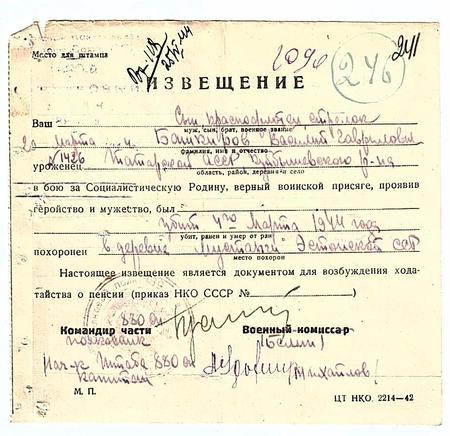 Место для штампа
1096
246
241
ИЗВЕЩЕНИЕ
Ваш Сын краснофлотец стрелок
муж, сын, брат, военное звание
Башкиров Василий Гаврилович
фамилия, имя и отчество
уроженец Татарской АССР Куйбышевского р-на
область, район, деревня и село
в бою за Социалистическую Родину, верный воинской присяге, проявив
геройство и мужество, был
убит 4го марта 1944 года
убит, ранен и умер от ран
похоронен в деревне Эстонской ССР
место похорон
Настоящее извещение является документом для возбуждения хода-
тайства о пенсии (приказ НКО СССР №                    )
880
Командир части Военный комиссар
подполковник
нач-к штаба 880 Михайлов
капитан
М. П. ЦТ НКО. 2214—42